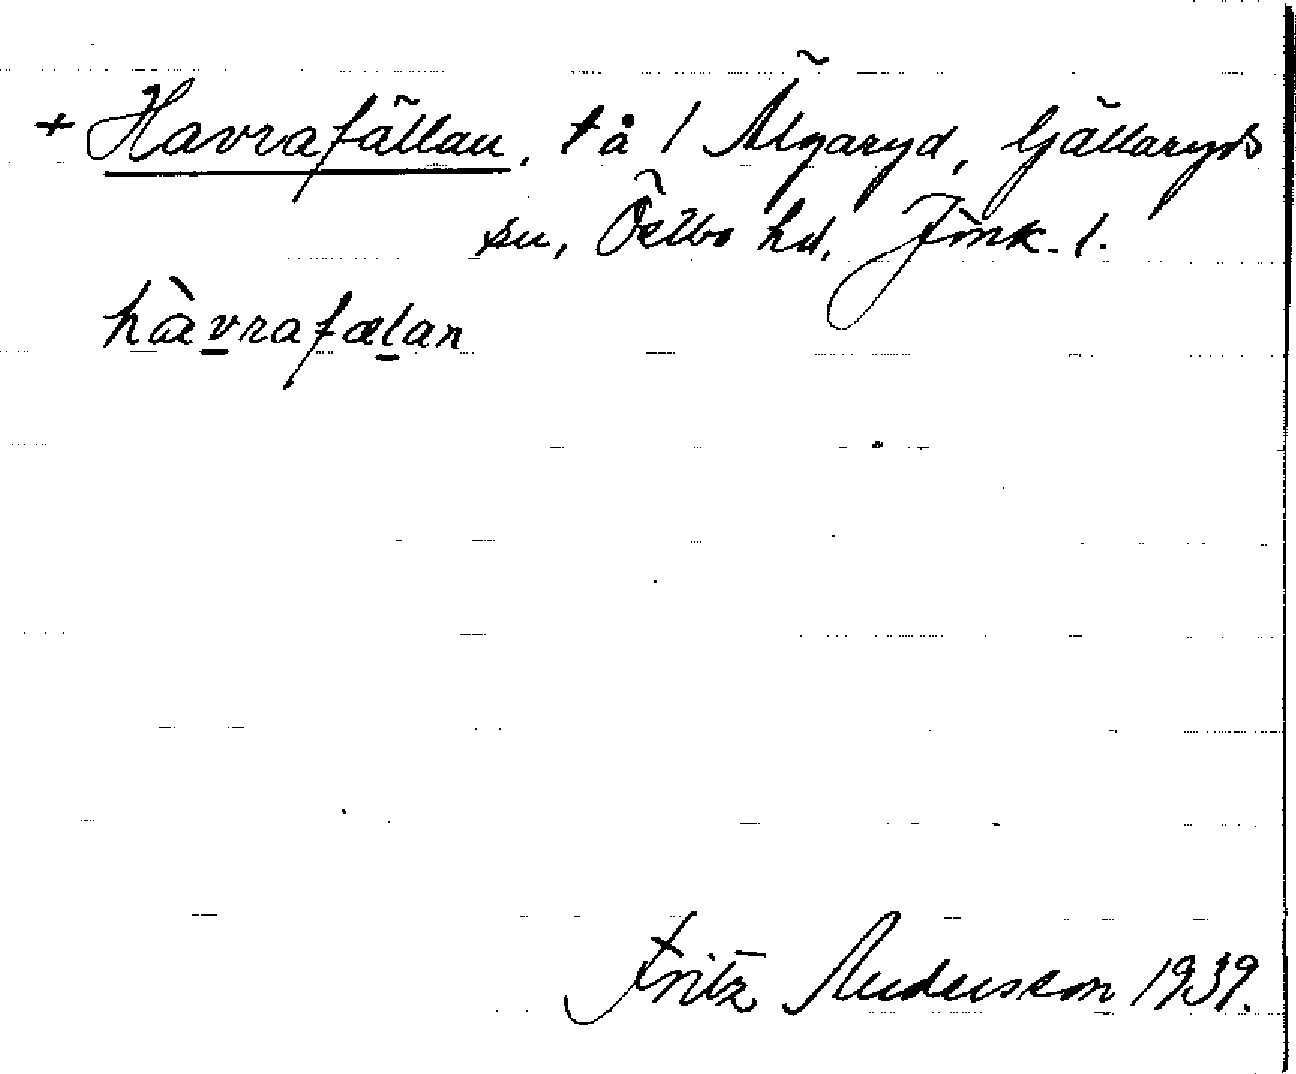 + Havrafällan, tå 1 Älgaryd, Gällaryds
sn, Östbo hd, Jönk. l.
hàvrafælan
Fritz Andersson 1939.